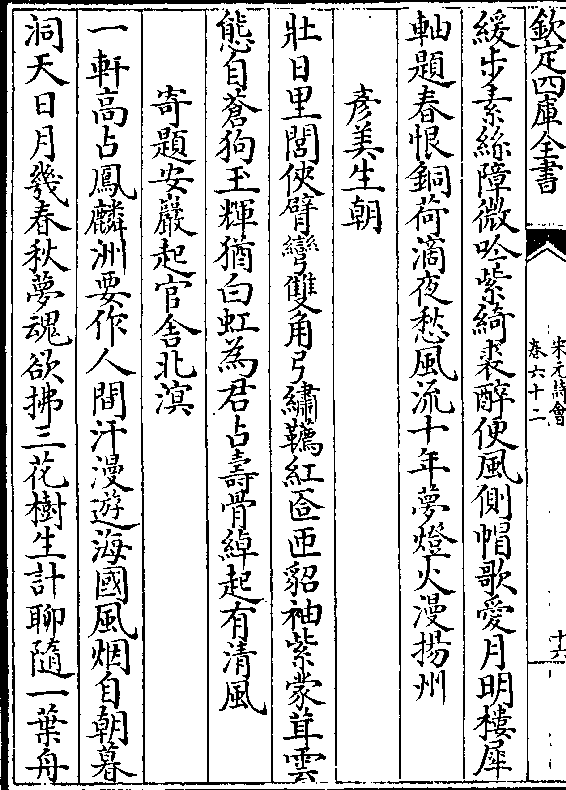 欽定四庫全書
宋元詩會
卷六十二
十六
緩步素絲障微吟紫綺裘醉便風側帽歌愛月明樓犀
軸題春恨銅荷滴夜愁風流十年夢燈火漫揚州
彥美生朝
壯日里閭俠臂彎雙角弓繡韉紅匼匝貂袖紫蒙茸雲
態自蒼狗玉輝猶白虹為君占壽骨綽起有清風
寄題安巖起官舍北溟
一軒高占鳳麟洲要作人間汗漫遊海國風烟自朝暮
洞天日月幾春秋夢魂欲拂三花樹生計聊隨一葉舟